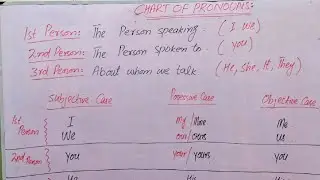 CHART OF PRONOUNS:
1st Person: The Person speaking. (I We)
2nd Person: The Person spoken to. (You)
3rd Person: About whom we talk (He, She, It, They)
Subjective Case Possessive Case Objective Case
1st Person I My/Mine Me
We our/ours us
2nd Person you your/yours you